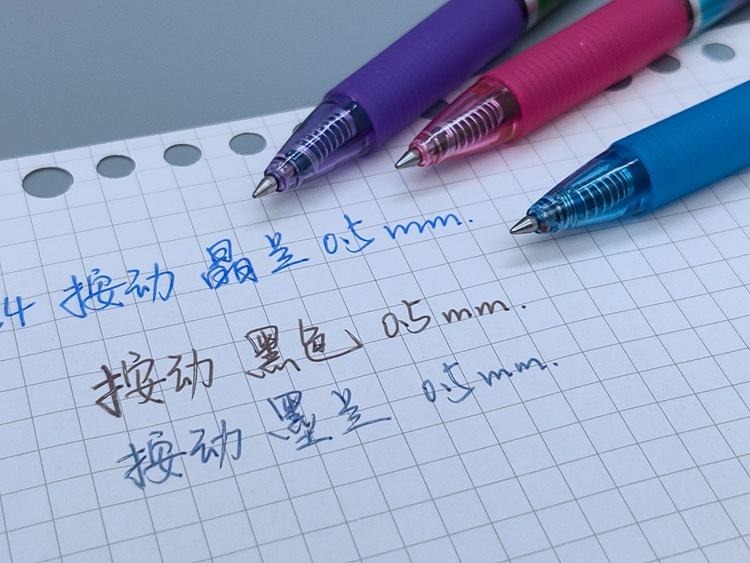 .4 按动 晶兰 0.5mm.
按动 黑色 0.5mm.
按动 墨兰 0.5mm.